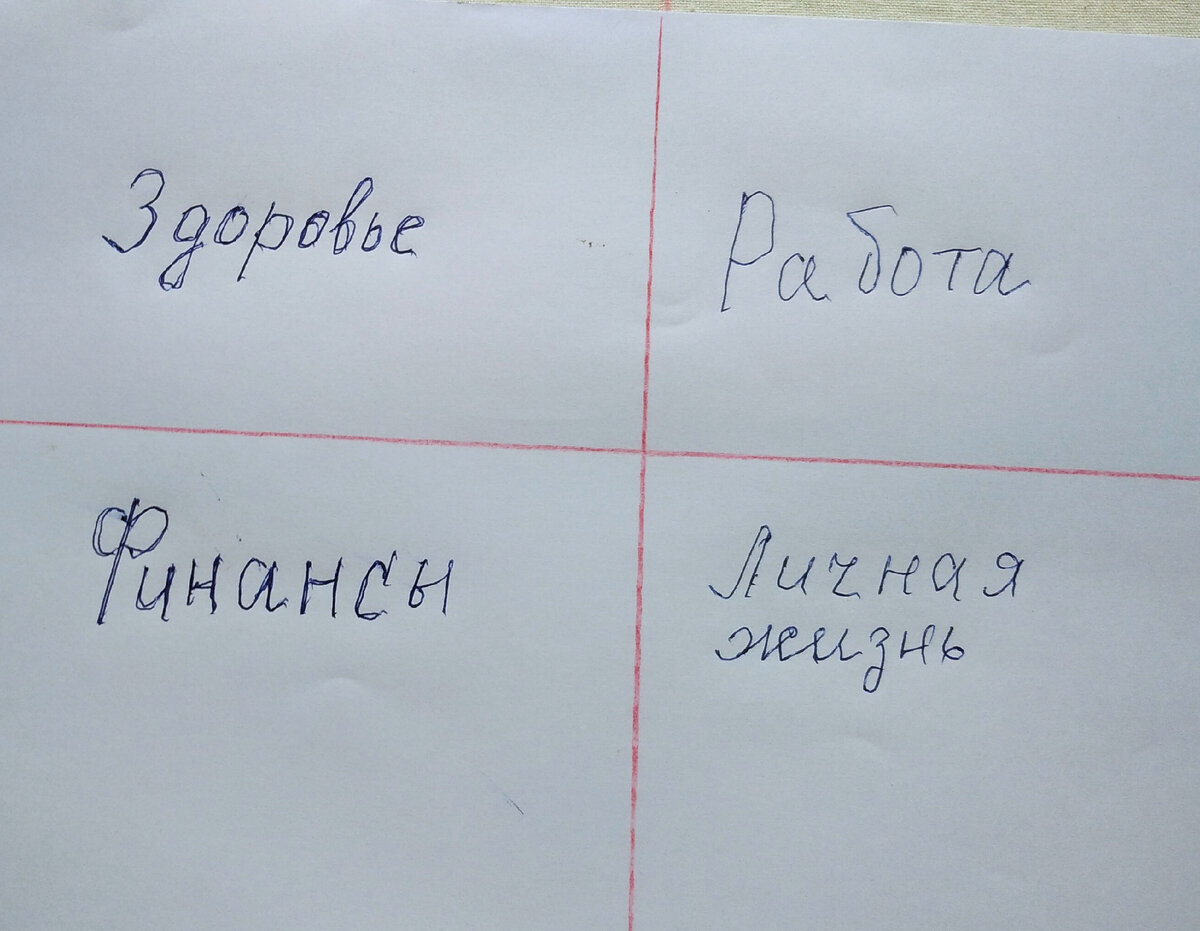 Здоровье
Работа
Финансы
Личная
жизнь